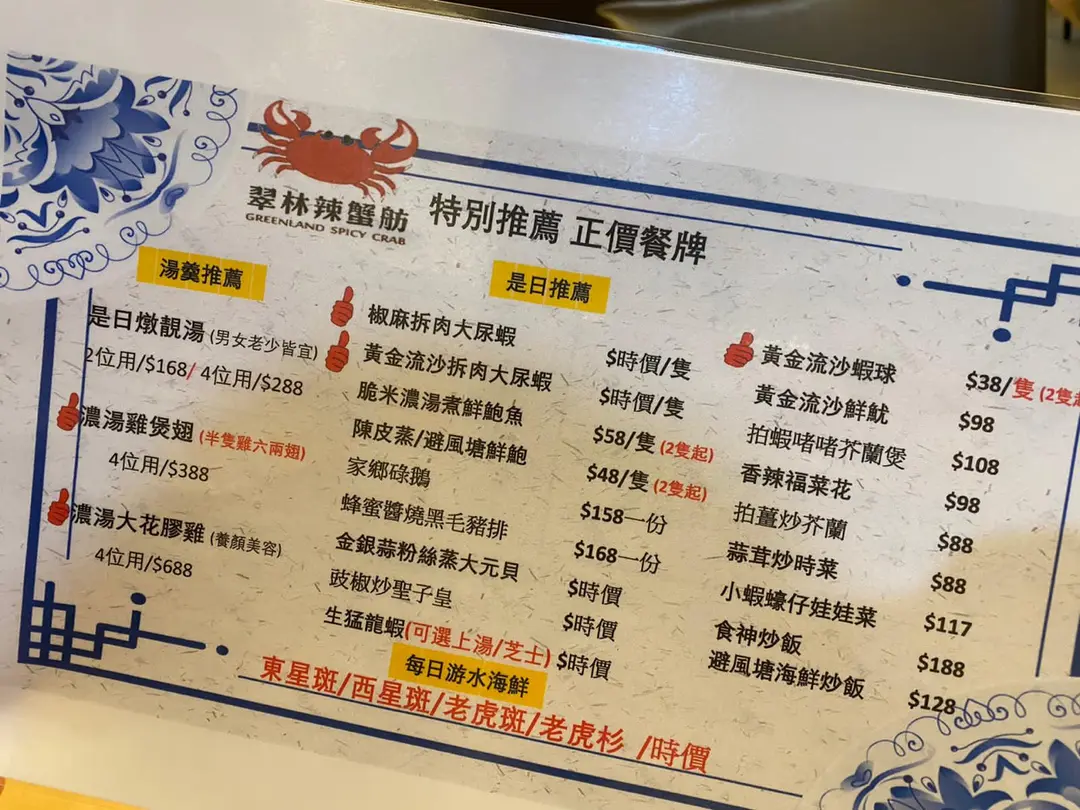 翠林辣蟹舫
GREENLAND SPICY CRAB
特別推薦 正價餐牌
湯羹推薦
是日燉靚湯 (男女老少皆宜)
2位用/$168/ 4位用/$288
濃湯雞煲翅 (半隻雞六兩翅)
4位用/$388
濃湯大花膠雞 (養顏美容)
4位用/$688
是日推薦
椒麻拆肉大尿蝦 $時價/隻
黃金流沙拆肉大尿蝦 $時價/隻
脆米濃湯煮鮮鮑魚 $58/隻 (2隻起)
陳皮蒸/避風塘鮮鮑 $48/隻 (2隻起)
家鄉碌鵝 $158一份
蜂蜜醬燒黑毛豬排 $168一份
金銀蒜粉絲蒸大元貝 $時價
豉椒炒聖子皇 $時價
生猛龍蝦(可選上湯/芝士) $時價
黃金流沙蝦球 $38/隻 (2隻起
黃金流沙鮮魷 $98
拍蝦啫啫芥蘭煲 $108
香辣福菜花 $98
拍薑炒芥蘭 $88
蒜茸炒時菜 $88
小蝦蠔仔娃娃菜 $117
食神炒飯 $188
避風塘海鮮炒飯 $128
每日游水海鮮
東星斑/西星斑/老虎斑/老虎杉 /時價